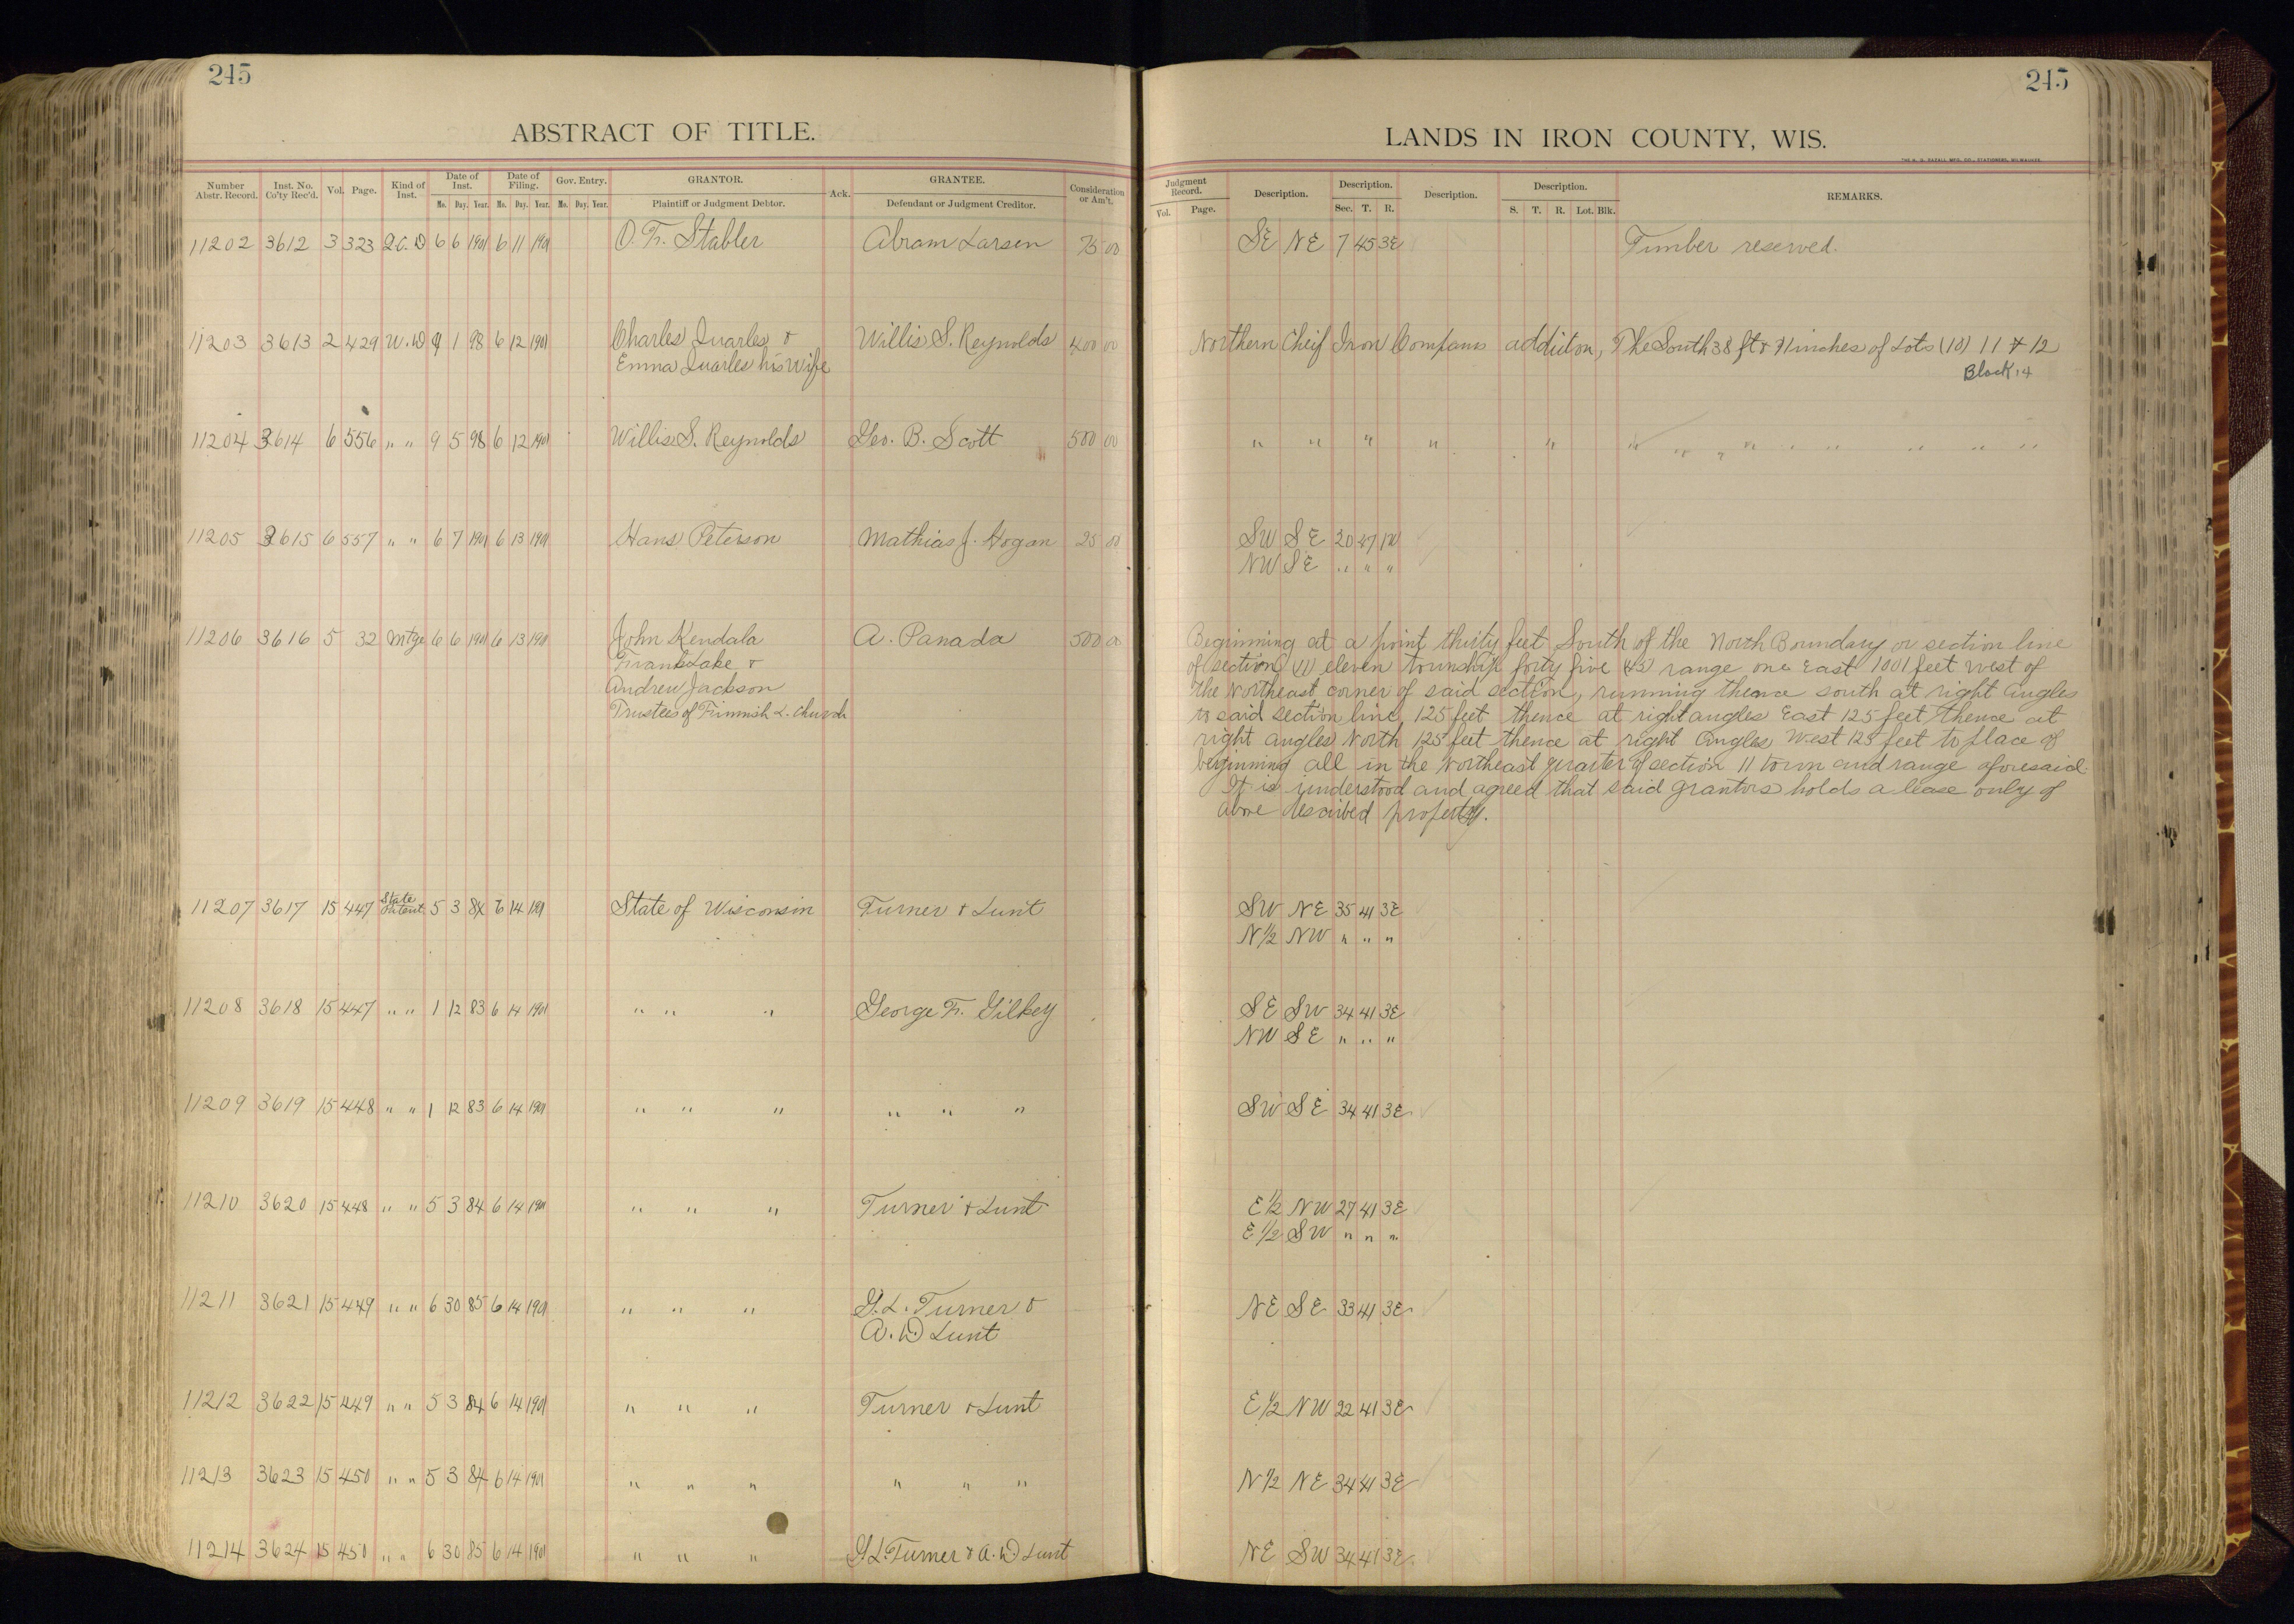 245
ABSTRACT OF TITLE.
Number Abstr. Record. Inst. No. Co'ty Rec'd. Vol. Page. Kind of Inst. Date of Inst. Mo. Day. Year. Date of Filing. Mo. Day. Year. Gov. Entry. Mo. Day. Year. GRANTOR. Plaintiff or Judgment Debtor. Ack. GRANTEE. Defendant or Judgment Creditor. Consideration or Am't.
11202 3612 3 323 Q.C.D 6 6 1901 6 11 1901 O. F. Stabler Abram Larsen 75 00
11203 3613 2 429 W.D 9 1 98 6 12 1901 Charles Quarles & Willis S. Reynolds 400 00
Emma Quarles his Wife
11204 3614 6 556 " " 9 5 98 6 12 1901 Willis S. Reynolds Geo. B. Scott 500 00
11205 3615 6 557 " " 6 7 1901 6 13 1901 Hans Peterson Mathias J. Hogan 25 00
11206 3616 5 32 Mtge 6 6 1901 6 13 1901 John Kendala A. Panada 500 00
Frank Lake &
Andrew Jackson
Trustees of Finnish L. Church
11207 3617 15 447 State Patent 5 3 84 6 14 1901 State of Wisconsin Turner & Lunt
11208 3618 15 447 " " 1 12 83 6 14 1901 " " " George F. Gilkey
11209 3619 15 448 " " 1 12 83 6 14 1901 " " " " " "
11210 3620 15 448 " " 5 3 84 6 14 1901 " " " Turner & Lunt
11211 3621 15 449 " " 6 30 85 6 14 1901 " " " G. L. Turner &
A. D Lunt
11212 3622 15 449 " " 5 3 84 6 14 1901 " " " Turner & Lunt
11213 3623 15 450 " " 5 3 84 6 14 1901 " " " " " "
11214 3624 15 450 " " 6 30 85 6 14 1901 " " " G L. Turner & A. D Lunt
245
LANDS IN IRON COUNTY, WIS.
Judgment Record. Vol. Page. Description. Description. Sec. T. R. Description. Description. S. T. R. Lot. Blk. REMARKS.
SE NE 7 45 3E Timber reserved.
Northern Cheif Iron Companis addicton, The South 38 ft & inches of Lots (10) 11 & 12
Block 14
" " " " " " " " " " " " " "
SW SE 20 47 1W
NW SE " " "
Beginning at a point thirty feet South of the North Boundary or section line
of section (11) eleven township forty five (45) range one East 1001 feet west of
the Northeast corner of said section, running thence south at right angles
to said section line, 125 feet thence at right angles East 125 feet thence at
right angles North 125 feet thence at right angles West 125 feet to place of
beginning all in the Northeast quarter of section 11 town and range aforesaid
It is understood and agreed that said grantors holds a lease only of
above described property.
SW NE 35 41 3E
N½ NW " " "
SE SW 34 41 3E
NW SE " " "
SW SE 34 41 3E
E½ NW 27 41 3E
E½ SW " " "
NE SE 33 41 3E
E½ NW 22 41 3E
N½ NE 34 41 3E
NE SW 34 41 3E